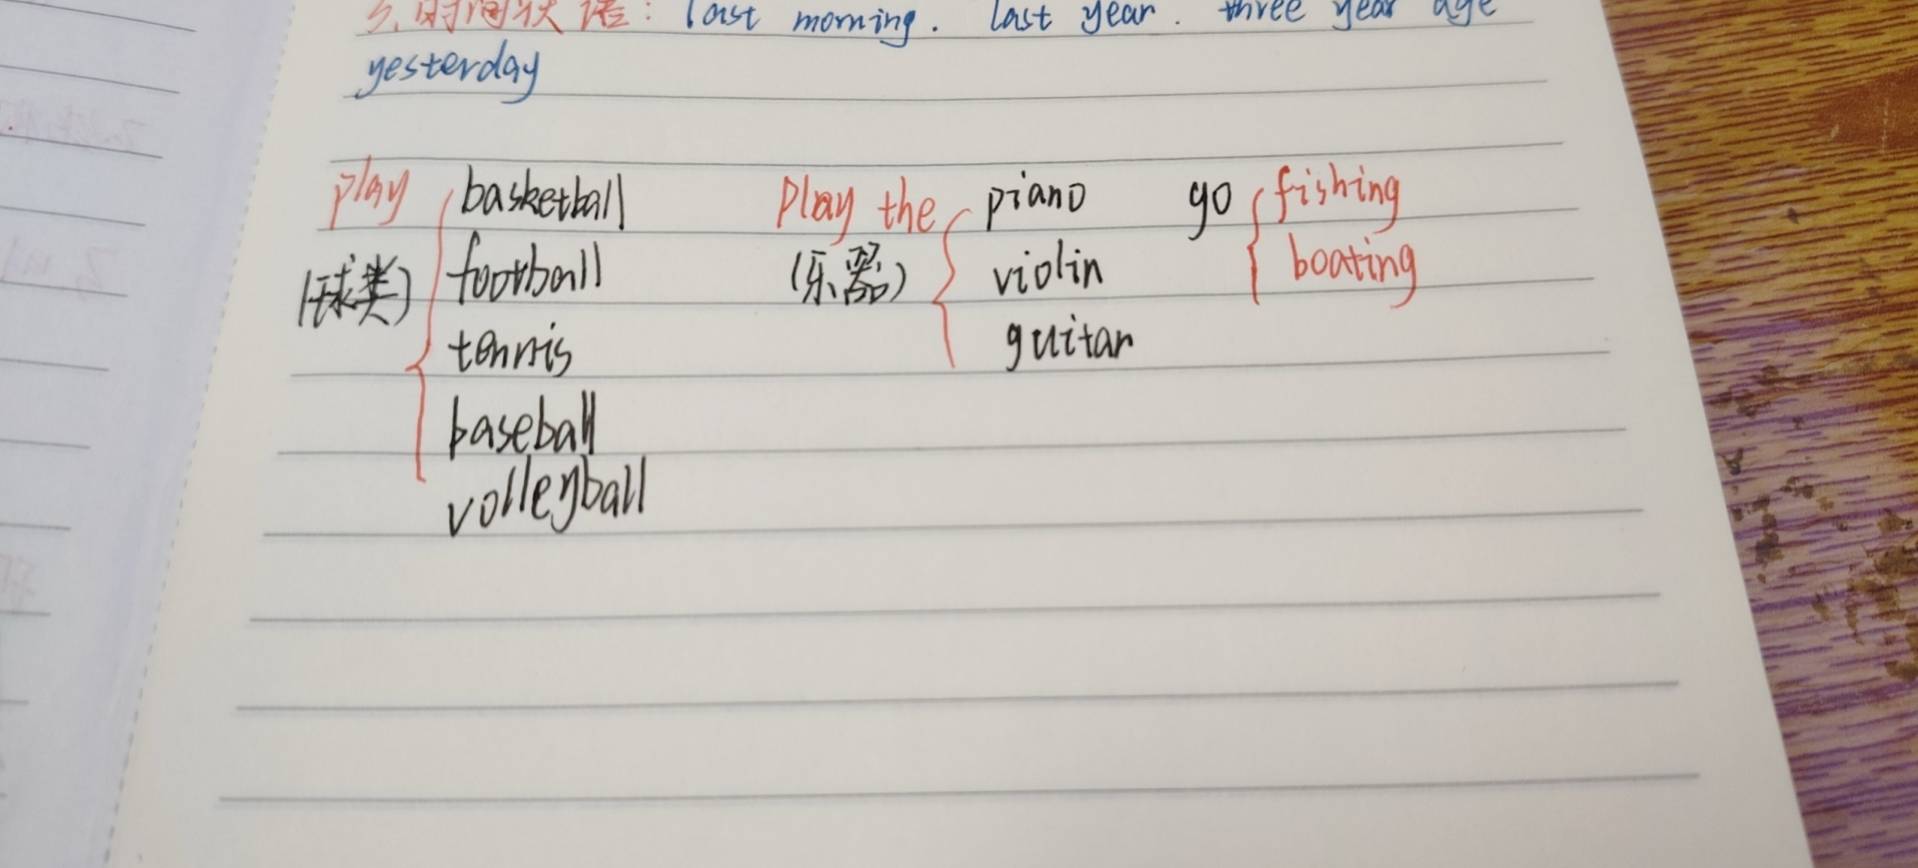 3. 时间状语: last morning. last year. three year age
yesterday
play basketball Play the piano go fishing
(球类) football (乐器) violin boating
tennis guitar
baseball
volleyball